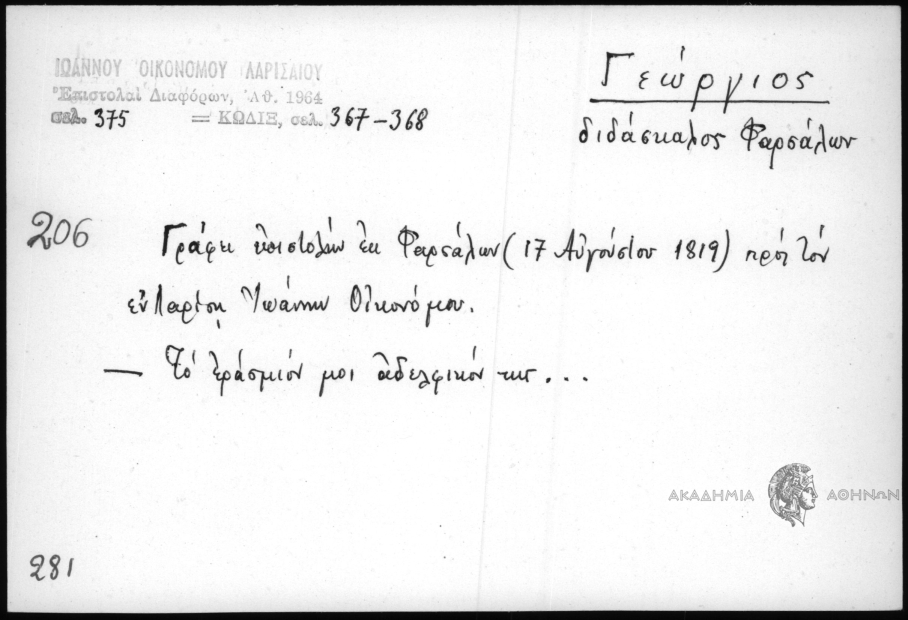 ΙΩΑΝΝΟΥ ΟΙΚΟΝΟΜΟΥ ΛΑΡΙΣΑΙΟΥ
Ἐπιστολαὶ Διαφόρων, Ἀθ. 1964
σελ. 375 = ΚΩΔΙΞ, σελ. 367-368
Γεώργιος
διδάσκαλος Φαρσάλων
206 Γράφει ἐπιστολὴν ἐκ Φαρσάλων (17 Αὐγούστου 1819) πρὸς τὸν
ἐν Λαρίσῃ Ἰωάννην Οἰκονόμου.
— Τὸ ἐράσμιόν μοι ἀδελφικόν της...
ΑΚΑΔΗΜΙΑ ΑΘΗΝΩΝ
281